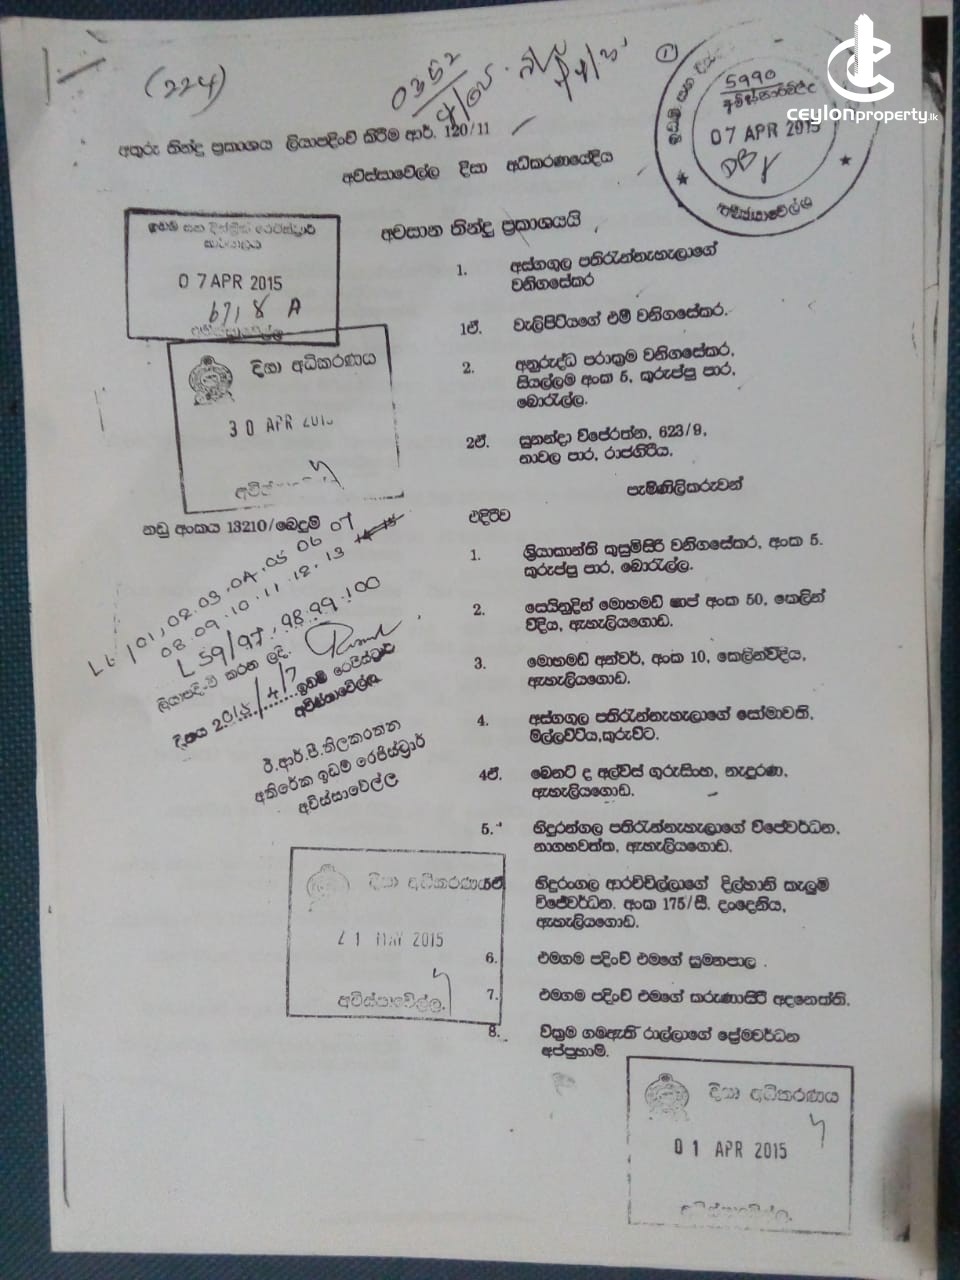 (224)
0352
①
5990
අවිස්සාවේල්ල
07 APR 2015
ceylonproperty.lk
අතුරු තින්දු ප්‍රකාශය ලියාපදිංචි කිරීම ආර්. 120/11
අවිස්සාවේල්ල දිසා අධිකරණයේදීය
අවසාන තින්දු ප්‍රකාශයයි
ඉඩම් සහ දිස්ත්‍රික් රෙජිස්ට්‍රාර්
කාර්යාලය
07 APR 2015
6718 A
අවිස්සාවේල්ල
1. අස්ගගුල පතිරැන්නැහැලාගේ
වනිගසේකර
1ඒ. වැලිපිටියගේ එමී වනිගසේකර.
2. අනුරුද්ධ පරාක්‍රම වනිගසේකර,
සියල්ලම අංක 5, කුරුප්පු පාර,
බොරැල්ල.
2ඒ. සුනන්දා විජේරත්න, 623/9,
නාවල පාර, රාජගිරිය.
දිසා අධිකරණය
30 APR 2015
පැමිණිලිකරුවන්
නඩු අංකය 13210/බෙදුම්
එදිරිව
1. ශ්‍රියාකාන්ති කුසුමසිරි වනිගසේකර, අංක 5.
කුරුප්පු පාර, බොරැල්ල.
2. සෙයිනුදීන් මොහමඩ් ෂාප් අංක 50, කෙලින්
වීදිය, ඇහැලියගොඩ.
3. මොහමඩ් අන්වර්, අංක 10, කෙලින්වීදිය,
ඇහැලියගොඩ.
4. අස්ගගුල පතිරැන්නැහැලාගේ සෝමාවති,
මිල්ලවිටිය,කුරුවිට.
4ඒ. බෙනට් ද අල්විස් ගුරුසිංහ, නැදුරණ,
ඇහැලියගොඩ.
5. හිදුරන්ගල පතිරැන්නැහැලාගේ විජේවර්ධන,
නාගහවත්ත, ඇහැලියගොඩ.
L6/01,02.03.04.05 06 07
08.09.10.11.12.13
L59/97..98.99.100
ලියාපදිංචි කරන ලදි.
දිනය 2015/4/7 ඉඩම් රෙජිස්ට්‍රාර්
අවිස්සාවේල්ල
ඊ.ආර්.පී.තිලකරත්න
අතිරේක ඉඩම් රෙජිස්ට්‍රාර්
අවිස්සාවේල්ල
දිසා අධිකරණය
21 MAY 2015
අවිස්සාවේල්ල.
ඒ හිදුරංගල ආරච්චිල්ලාගේ දිල්හානි කැලුම්
විජේවර්ධන. අංක 175/සී. දංදෙනිය,
ඇහැලියගොඩ.
6. එමගම පදිංචි එමගේ සුමනපාල .
7. එමගම පදිංචි එමගේ කරුණාසිරි අදනෙත්ති.
8. වික්‍රම ගමඇති රාල්ලාගේ ප්‍රේමවර්ධන
අප්පුහාමි.
දිසා අධිකරණය
01 APR 2015
අවිස්සාවේල්ල.